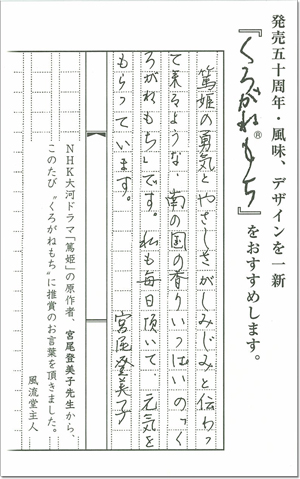 発売五十周年・風味、デザインを一新
『くろがねもち®』をおすすめします。
篤姫の勇気とやさしさがしみじみと伝わっ
て来るような、南の国の香りいっぱいの「く
ろがねもち」です。私も毎日頂いて、元気を
もらっています。
宮尾登美子
NHK大河ドラマ「篤姫」の原作者、宮尾登美子先生から、
このたび〝くろがねもち〟に推賞のお言葉を頂きました。
風流堂主人